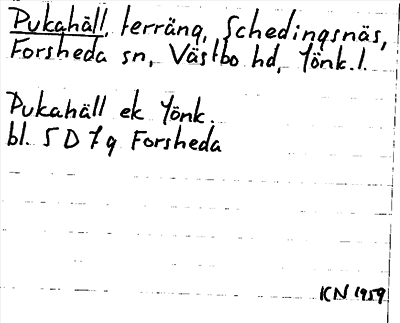 Pukahäll, terräng, Schedingsnäs,
Forsheda sn, Västbo hd, Jönk. l.
Pukahäll ek Jönk.
bl. 5 D 7 g Forsheda
KN 1959